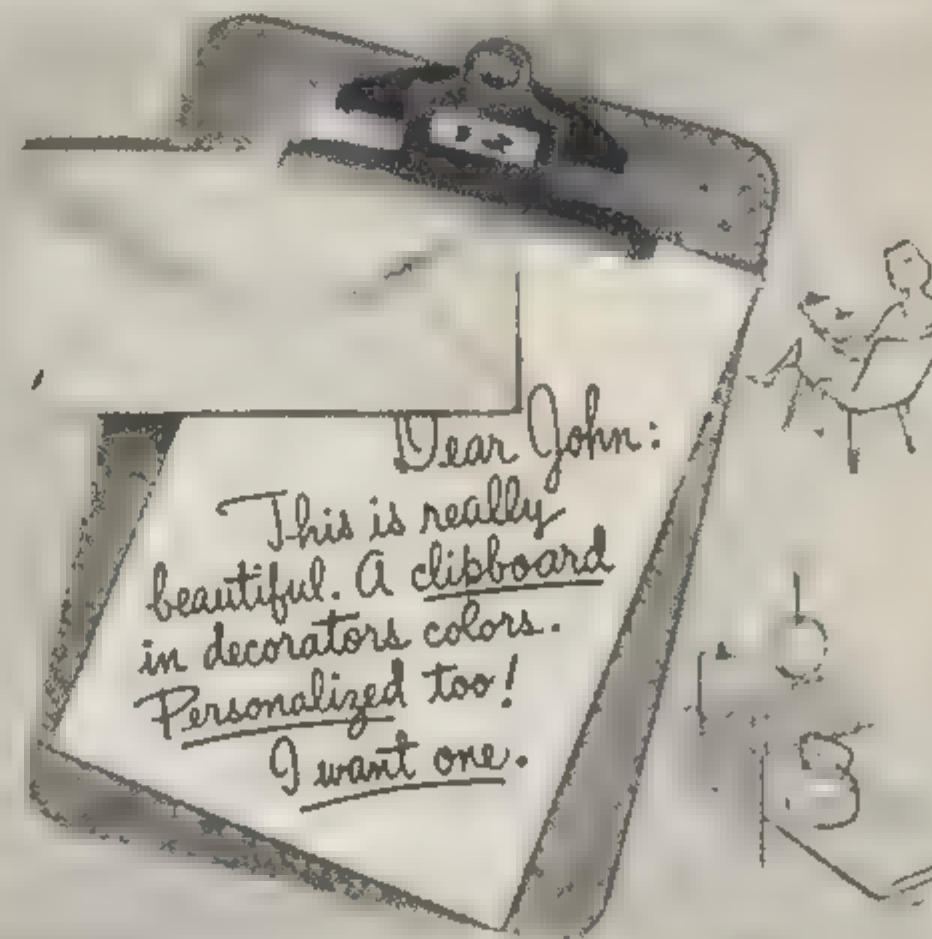 Dear John:
This is really
beautiful. A clipboard
in decorators colors.
Personalized too!
I want one.